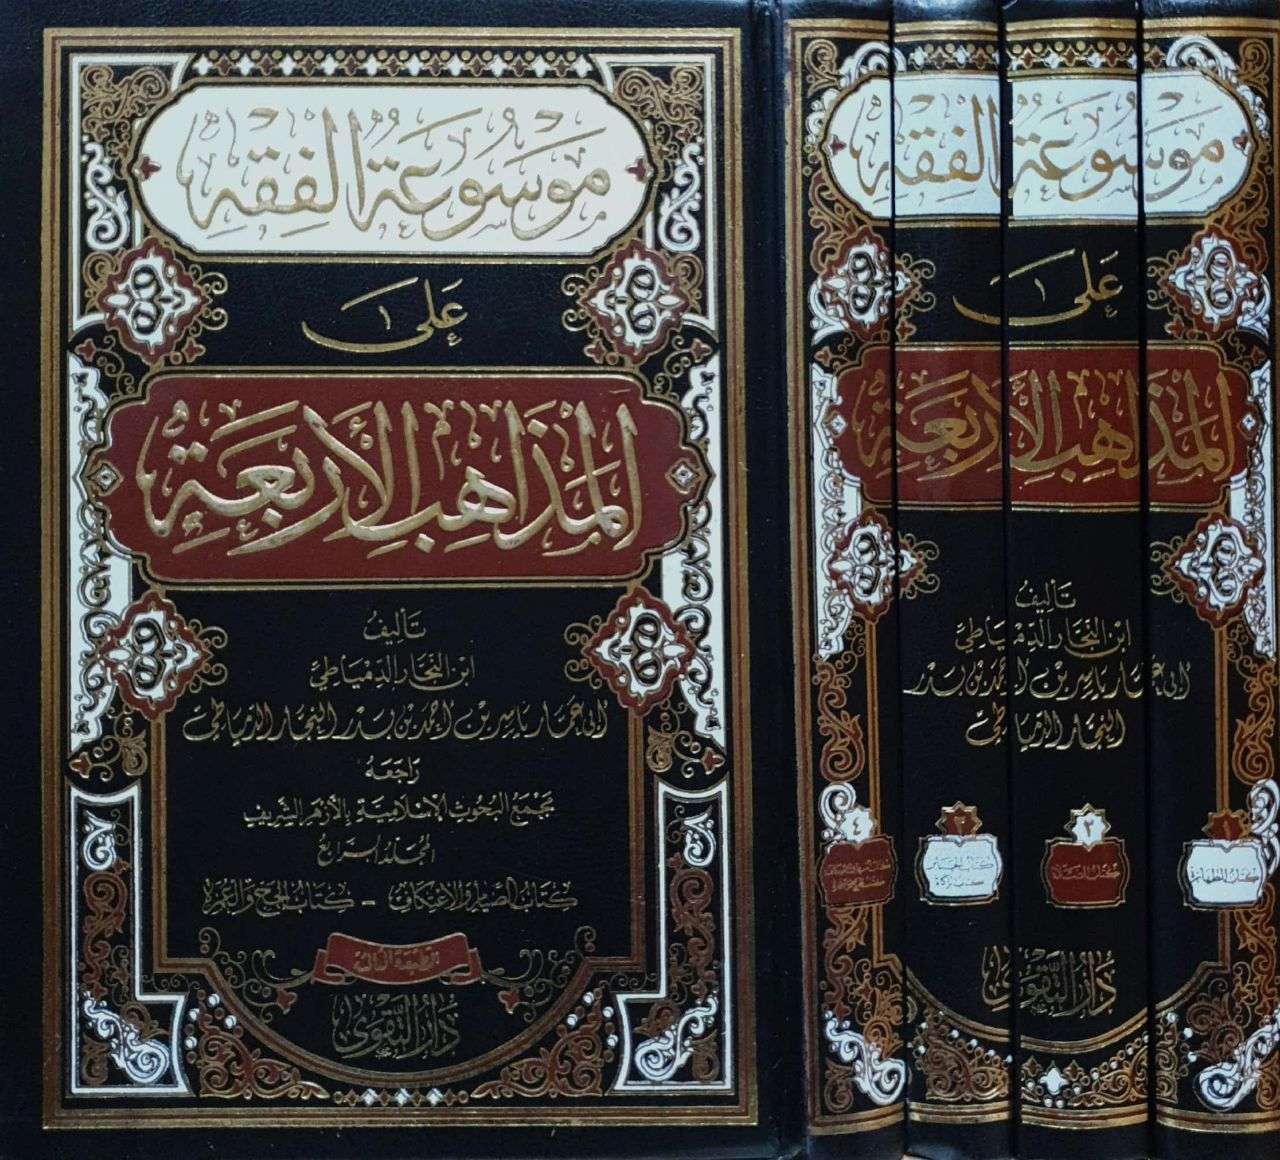 موسوعة الفقه
على
المذاهب الأربعة
تأليف
ابن النجار الدمياطي
أبي عمار ياسر بن أحمد بن بدر النجار الدمياطي
راجعه
مجمع البحوث الإسلامية بالأزهر الشريف
المجلد الرابع
كتاب الصيام والاعتكاف - كتاب الحج والعمرة
دار التقوى
موسوعة الفقه
على
المذاهب الأربعة
تأليف
ابن النجار الدمياطي
أبي عمار ياسر بن أحمد بن بدر
النجار الدمياطي
١
كتاب الطهارة
٢
كتاب الصلاة
٣
كتاب الجنائز
كتاب الزكاة
٤
دار التقوى